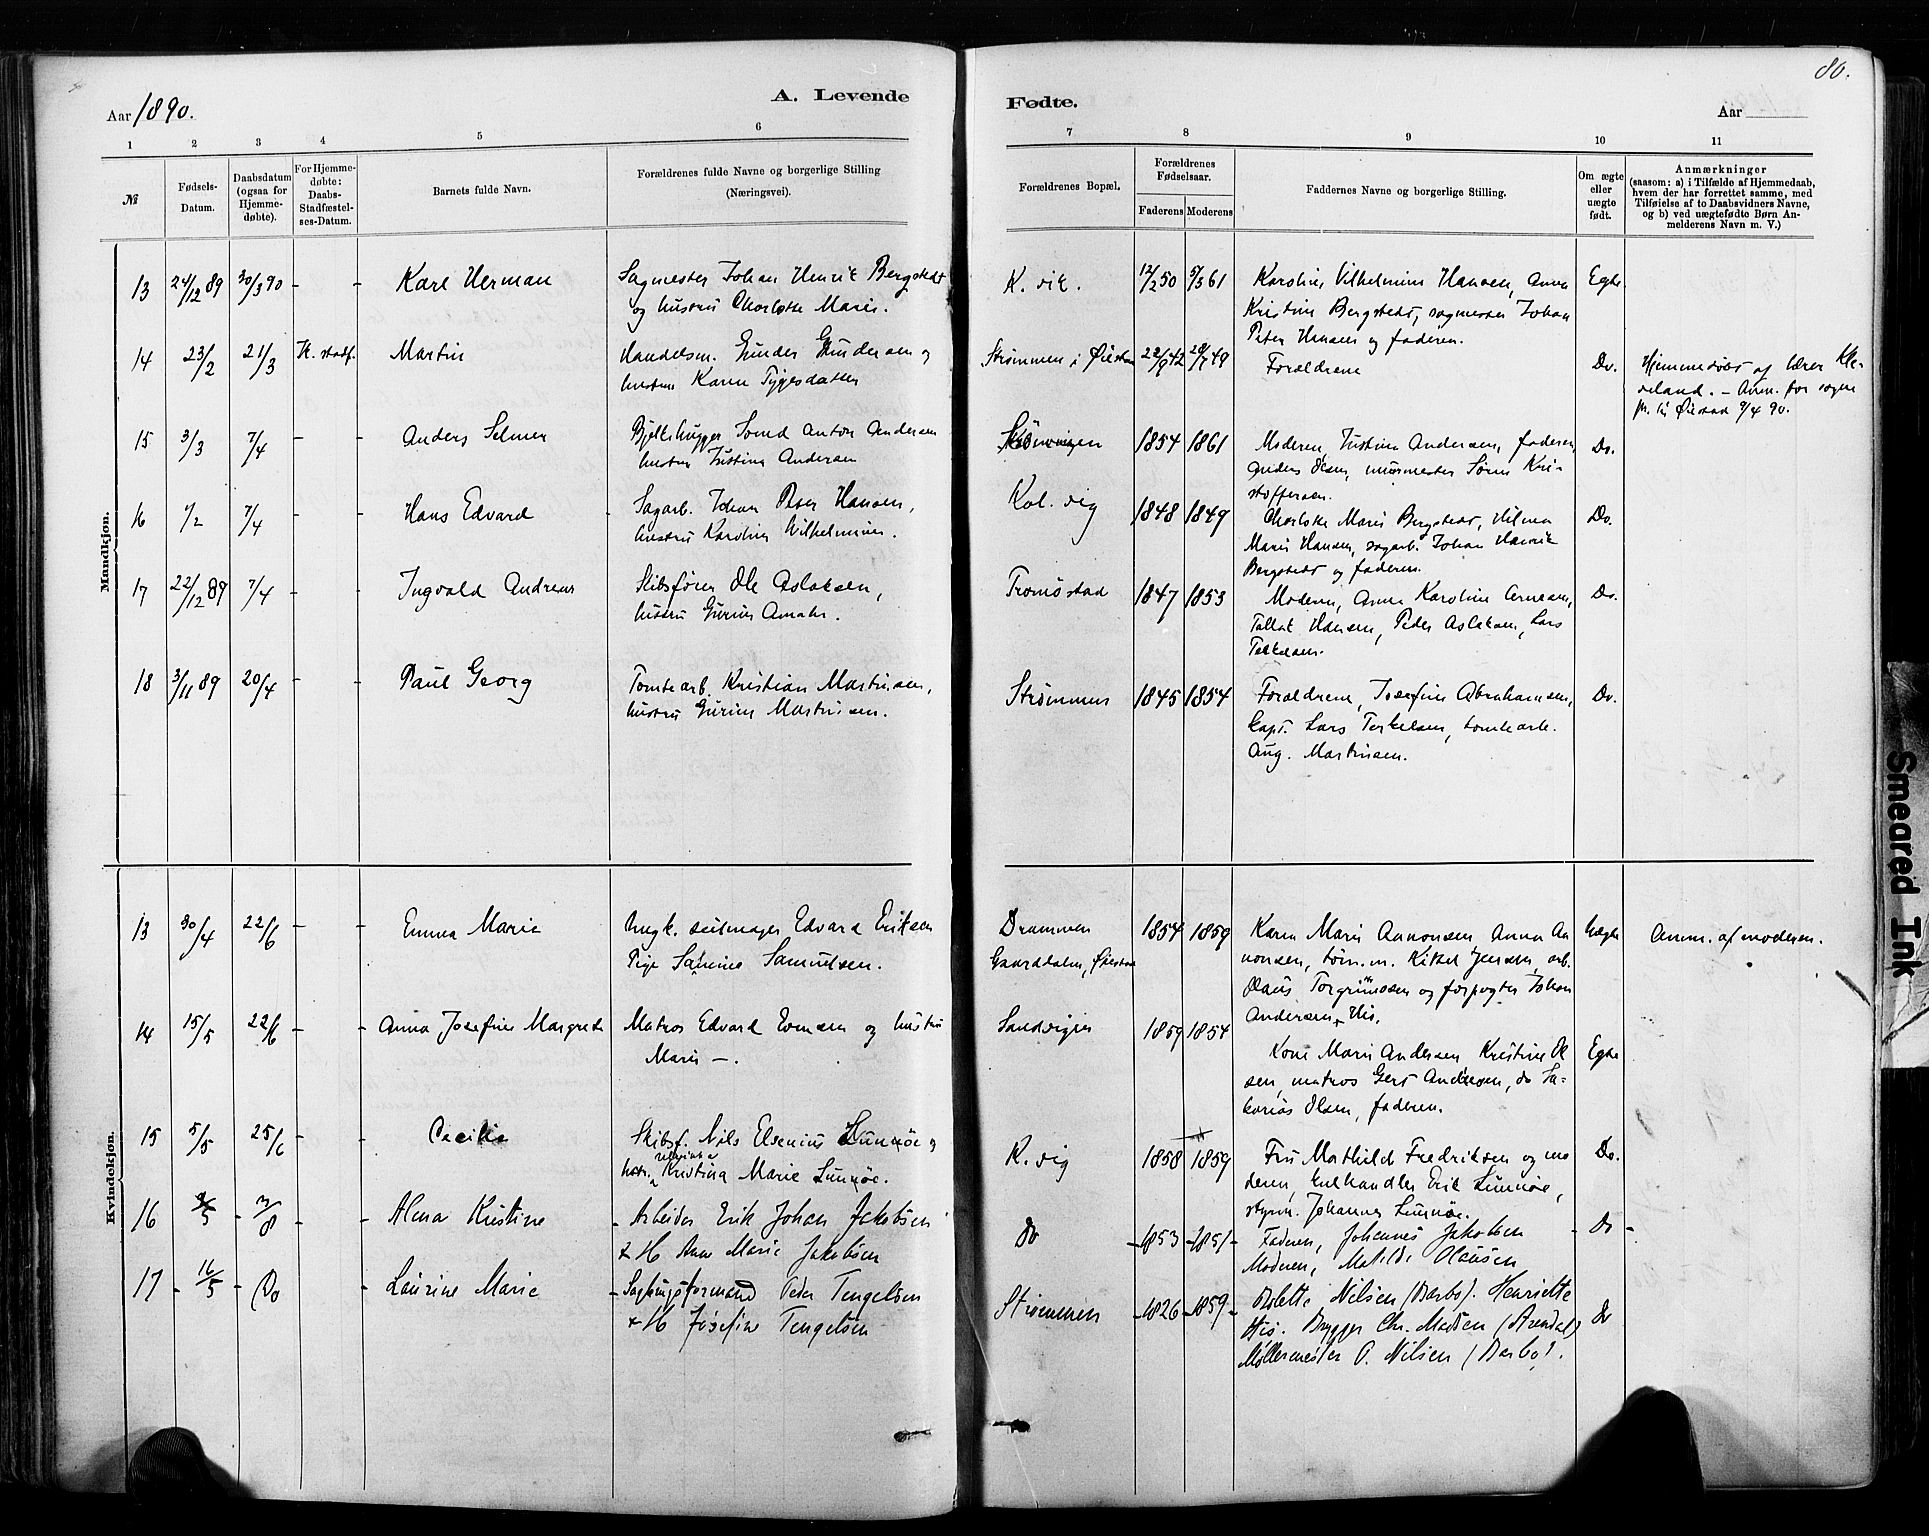 80.
Aar 1890.
A. Levende
Fødte.
Aar
1 2 3 4 5 6 7 8 9 10 11
№
Fødsels-
Datum.
Daabsdatum
(ogsaa for
Hjemme-
døbte).
For Hjemme-
døbte:
Daabs-
Stadfæstel-
ses-Datum.
Barnets fulde Navn.
Forældrenes fulde Navne og borgerlige Stilling
(Næringsvei).
Forældrenes Bopæl.
Forældrenes
Fødselsaar.
Faderens Moderens
Faddernes Navne og borgerlige Stilling.
Om ægte
eller
uægte
født.
Anmærkninger
(saasom: a) i Tilfælde af Hjemmedaab,
hvem der har forrettet samme, med
Tilføielse af to Daabsvidners Navne,
og b) ved uægtefødte Børn An-
melderens Navn m. V.)
Mandkjøn.
13 24/12 89 30/3 90 - - Karl Herman
Sagmester Johan Henrik Bergstedt
og hustru Charlotte Marie.
K. vik. 12/2 50 5/3 61
Karoline Vilhelmine Hansen, Anna
Kristine Bergstedt, sagmester Johan
Peter Hansen og faderen.
Egte
14 23/2 21/3 K. stadf. Martin
Handelsm. Gunder Gundersen og
hustru Karen Tygesdatter
Strømmen i Øiestad 22/9 42 49
Forældrene
Do.
Hjemmedøbt af lærer Kle-
veland. - Anm. for sogne
pr. til Øiestad 9/4 90.
15 3/3 7/4 - - Anders Selmer
Bjelkehugger Anton Andersen
hustru Justine Andersen
1854 1861
Moderen, Justine Andersen, faderen,
Anders Olsen, murmester Søren Kri-
stoffersen.
Do.
16 7/4 - - Hans Edvard
Sagarb. Johan Peter Hansen,
hustru Karoline Wilhelmine.
Kol. vig 1848 1849
Charlotte Marie Bergstedt, Hilma
Marie Hansen, sagarb. Johan Henrik
Bergstedt og faderen.
Do.
17 22/12 89 7/4 - - Ingvald Andreas
Skibsfører Ole Aslaksen,
hustru Gurine Amalie.
Tromøstad 1847 1853
Moderen, Anna Karoline Arnesen,
Tallak Hansen, Peder Aslaksen, Lars
Terkelsen.
Do.
18 3/11 89 20/4 - - Paul Georg
Tomtearb. Kristian Martinsen,
hustru Gurine Martinsen.
Strømmen 1845 1854
Forældrene, Josefine Abrahamsen,
kapt. Lars Terkelsen, tomtearb.
Aug. Martinsen.
Do.
Kvindekjøn.
13 30/4 22/6 - - Emma Marie
Ungk. seilmager Edvard Eriksen
Pige Samine Samuelsen.
Drammen
Gaarddalen, Øiestad
1854 1859
Karen Marie Aanonsen, Anna Aa-
nonsen, tøm.m. Kittel Jensen, arb.
Olaus Torgrimsen og forpagter Johan
Andersen, His.
Uægte
Anm. af moderen.
14 15/5 22/6 - - Anna Josefine Margrete
Matros Edvard Evensen og hustru
Marie -.
Sandvigen 1859 1854
Kone Marie Andersen Kristine Ol
sen, matros Gert Andersen, do Sa-
karias Olsen, faderen.
Egte
15 5/5 25/6 - - Cecilie
Skibsf. Nils Elsenius Lunnøe og
hust. Kristina Marie Lunnøe.
K. vig 1858 1859
Fru Mathilde Fredriksen og mo
deren, Erik Lunnøe,
styrm. Johannes Lunnøe.
Do.
16 3/8 - - Alma Kristine
- Arbeider Erik Johan Jakobsen
& H Ane Marie Jakobsen
Do - 1853 - 1851 -
Faderen, Johannes Jakobsen
Moderen, Matilde Olausen
- Do -
17 - 16/5 - Do - Laurine Marie
- Sagbrugsformand Peder Tengelsen
& H Josefine Tengelsen
Strømmen - 1826 - 1859 -
Bolette Nilsen (Barbo). Henriette
His. Brygger Chr. Madsen (Arendal)
Møllermester P. Nilsen (Barbo).
Do
Smeared Ink